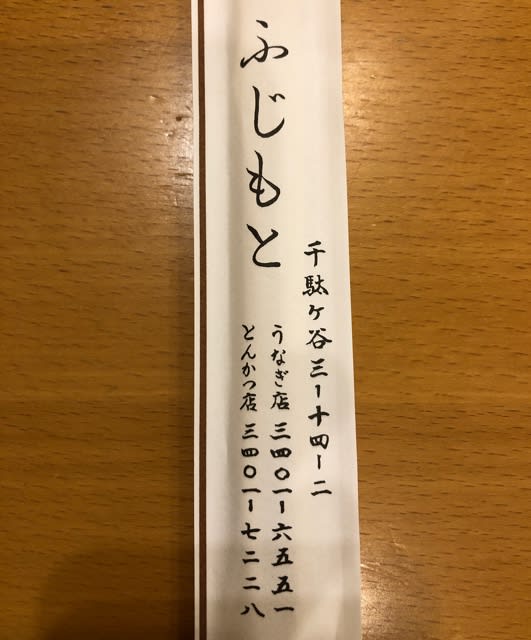 千駄ケ谷三ー十四ー二
ふじもと
うなぎ店 三四〇一ー六五五一
とんかつ店 三四〇一ー七二二八